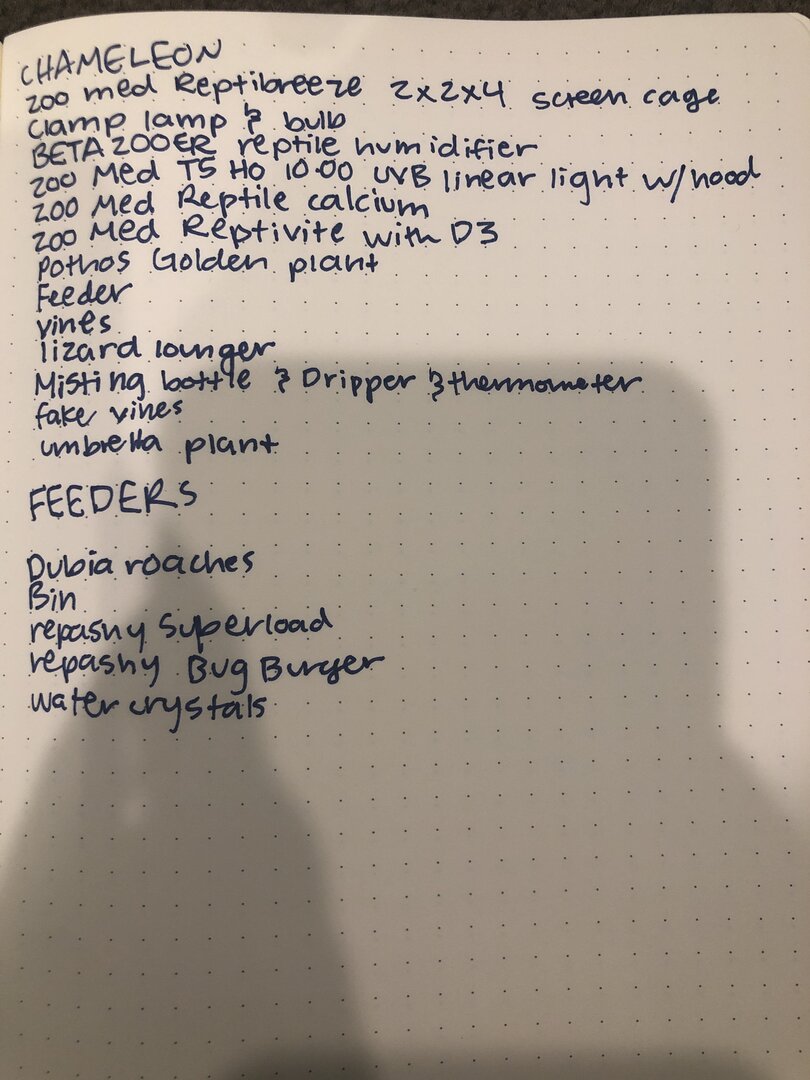 CHAMELEON
zoo med Reptibreeze 2x2x4 screen cage
clamp lamp & bulb
BETAZOOER reptile humidifier
zoo Med T5 HO 10.00 UVB linear light w/hood
zoo Med Reptile calcium
zoo Med Reptivite with D3
Pothos Golden plant
Feeder
vines
lizard lounger
Misting bottle & Dripper & thermometer
fake vines
umbrella plant
FEEDERS
Dubia roaches
Bin
repashy Superload
repashy Bug Burger
water crystals